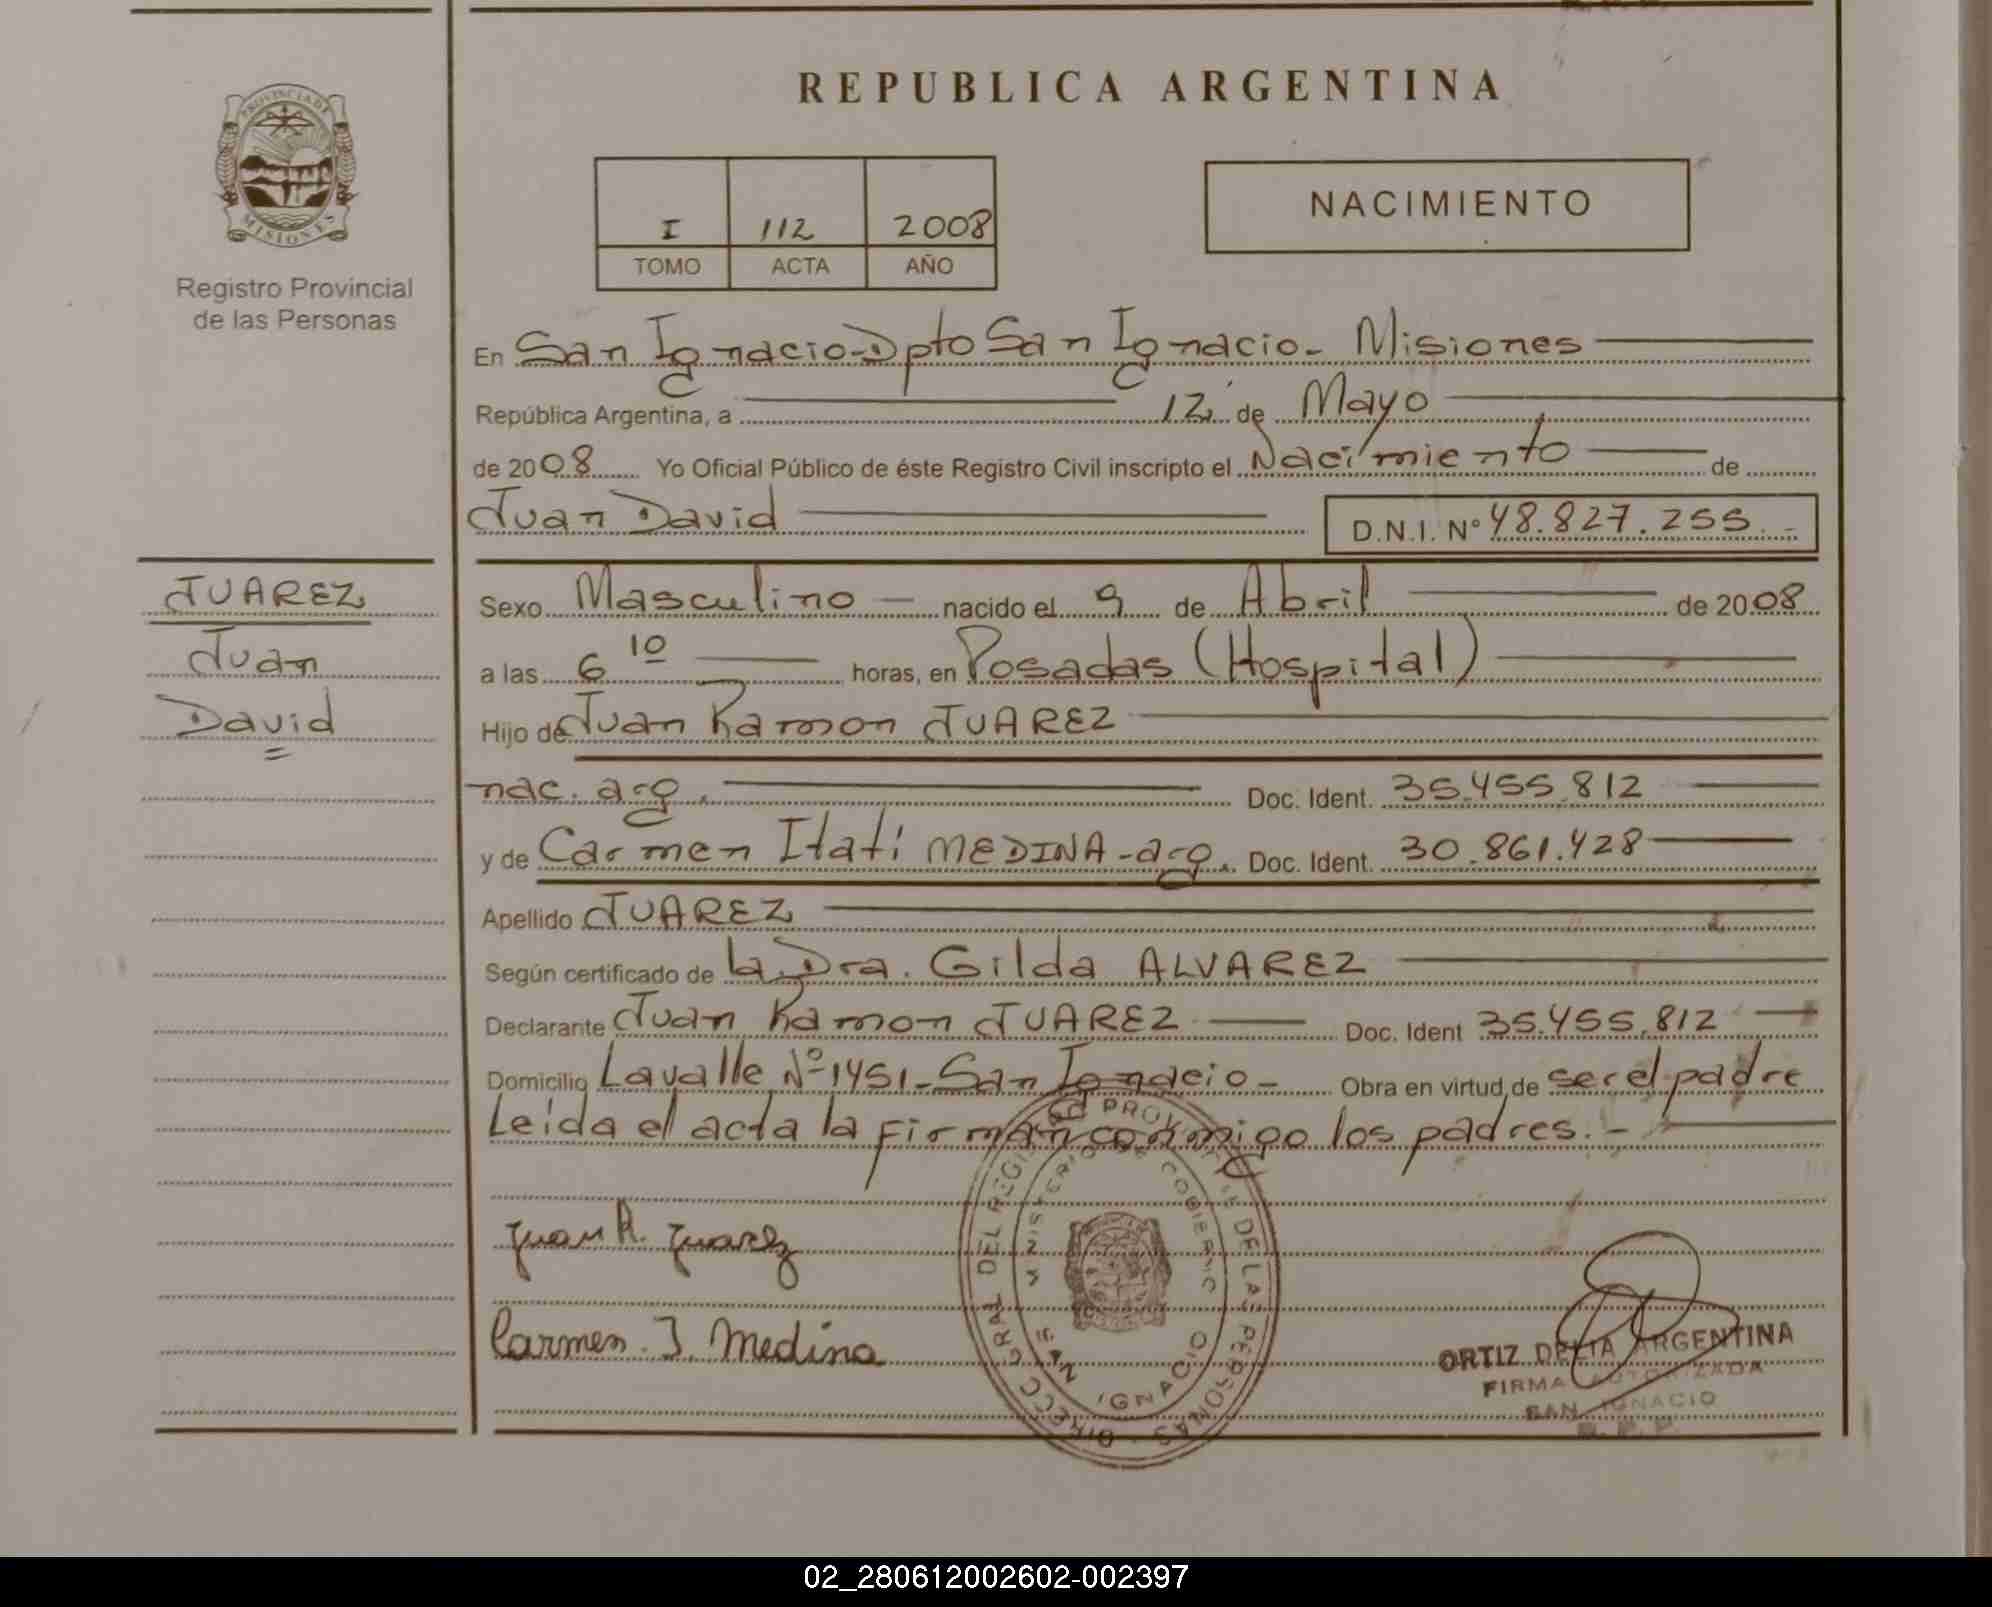 REPUBLICA ARGENTINA
PROVINCIA DE
MISIONES
Registro Provincial
de las Personas
I 112 2008
TOMO ACTA AÑO
NACIMIENTO
En San Ignacio-Dpto San Ignacio- Misiones
República Argentina, a 12 de Mayo
de 2008 Yo Oficial Público de éste Registro Civil inscripto el Nacimiento de
Juan David D.N.I. Nº 48.827.255.-
JUAREZ
Juan
David
Sexo Masculino nacido el 9 de Abril de 2008
a las 6 10 horas, en Posadas (Hospital)
Hijo de Juan Ramon JUAREZ
nac. arg. Doc. Ident. 35.455.812
y de Carmen Itatí MEDINA-arg. Doc. Ident. 30.861.428
Apellido JUAREZ
Según certificado de la Dra. Gilda ALVAREZ
Declarante Juan Ramon JUAREZ Doc. Ident 35.455.812
Domicilio Lavalle Nº 1451-San Ignacio- Obra en virtud de ser el padre
Leída el acta la firman conmigo los padres.-
Juan R. Juarez
Carmen. I. Medina
DIRECC GRAL DEL REGISTRO PROVINCIAL DE LAS PERSONAS
MINISTERIO DE GOBIERNO
SAN IGNACIO
ORTIZ DELIA ARGENTINA
FIRMA AUTORIZADA
SAN IGNACIO
R. P. P.
02_280612002602-002397